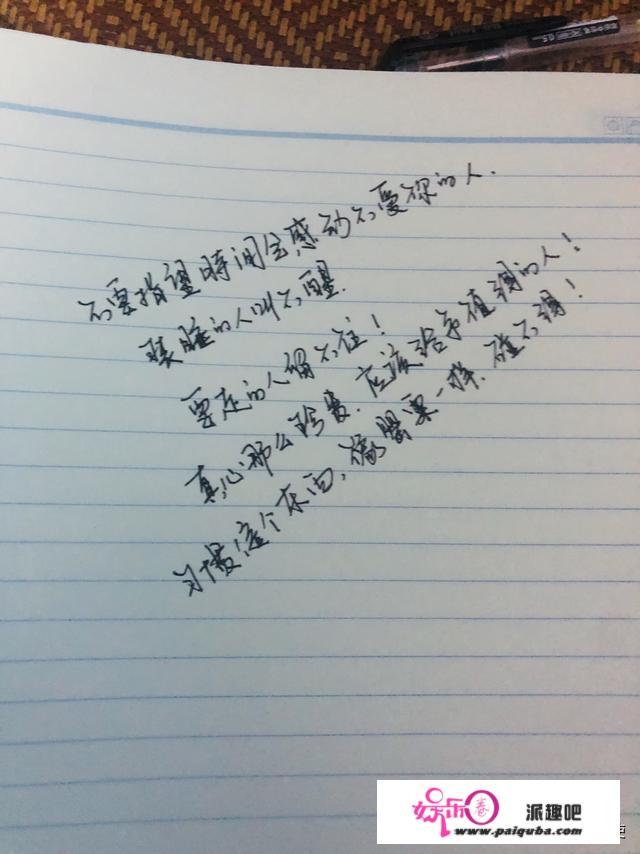 不要指望時间会感动不爱你的人.
装睡的人叫不醒.
要走的人留不住!
真心那么珍贵.应该给予值得的人!
习惯这个东西,像罂粟一样.碰不得!
0.5
娱乐圈
派趣吧
www.paiquba.com